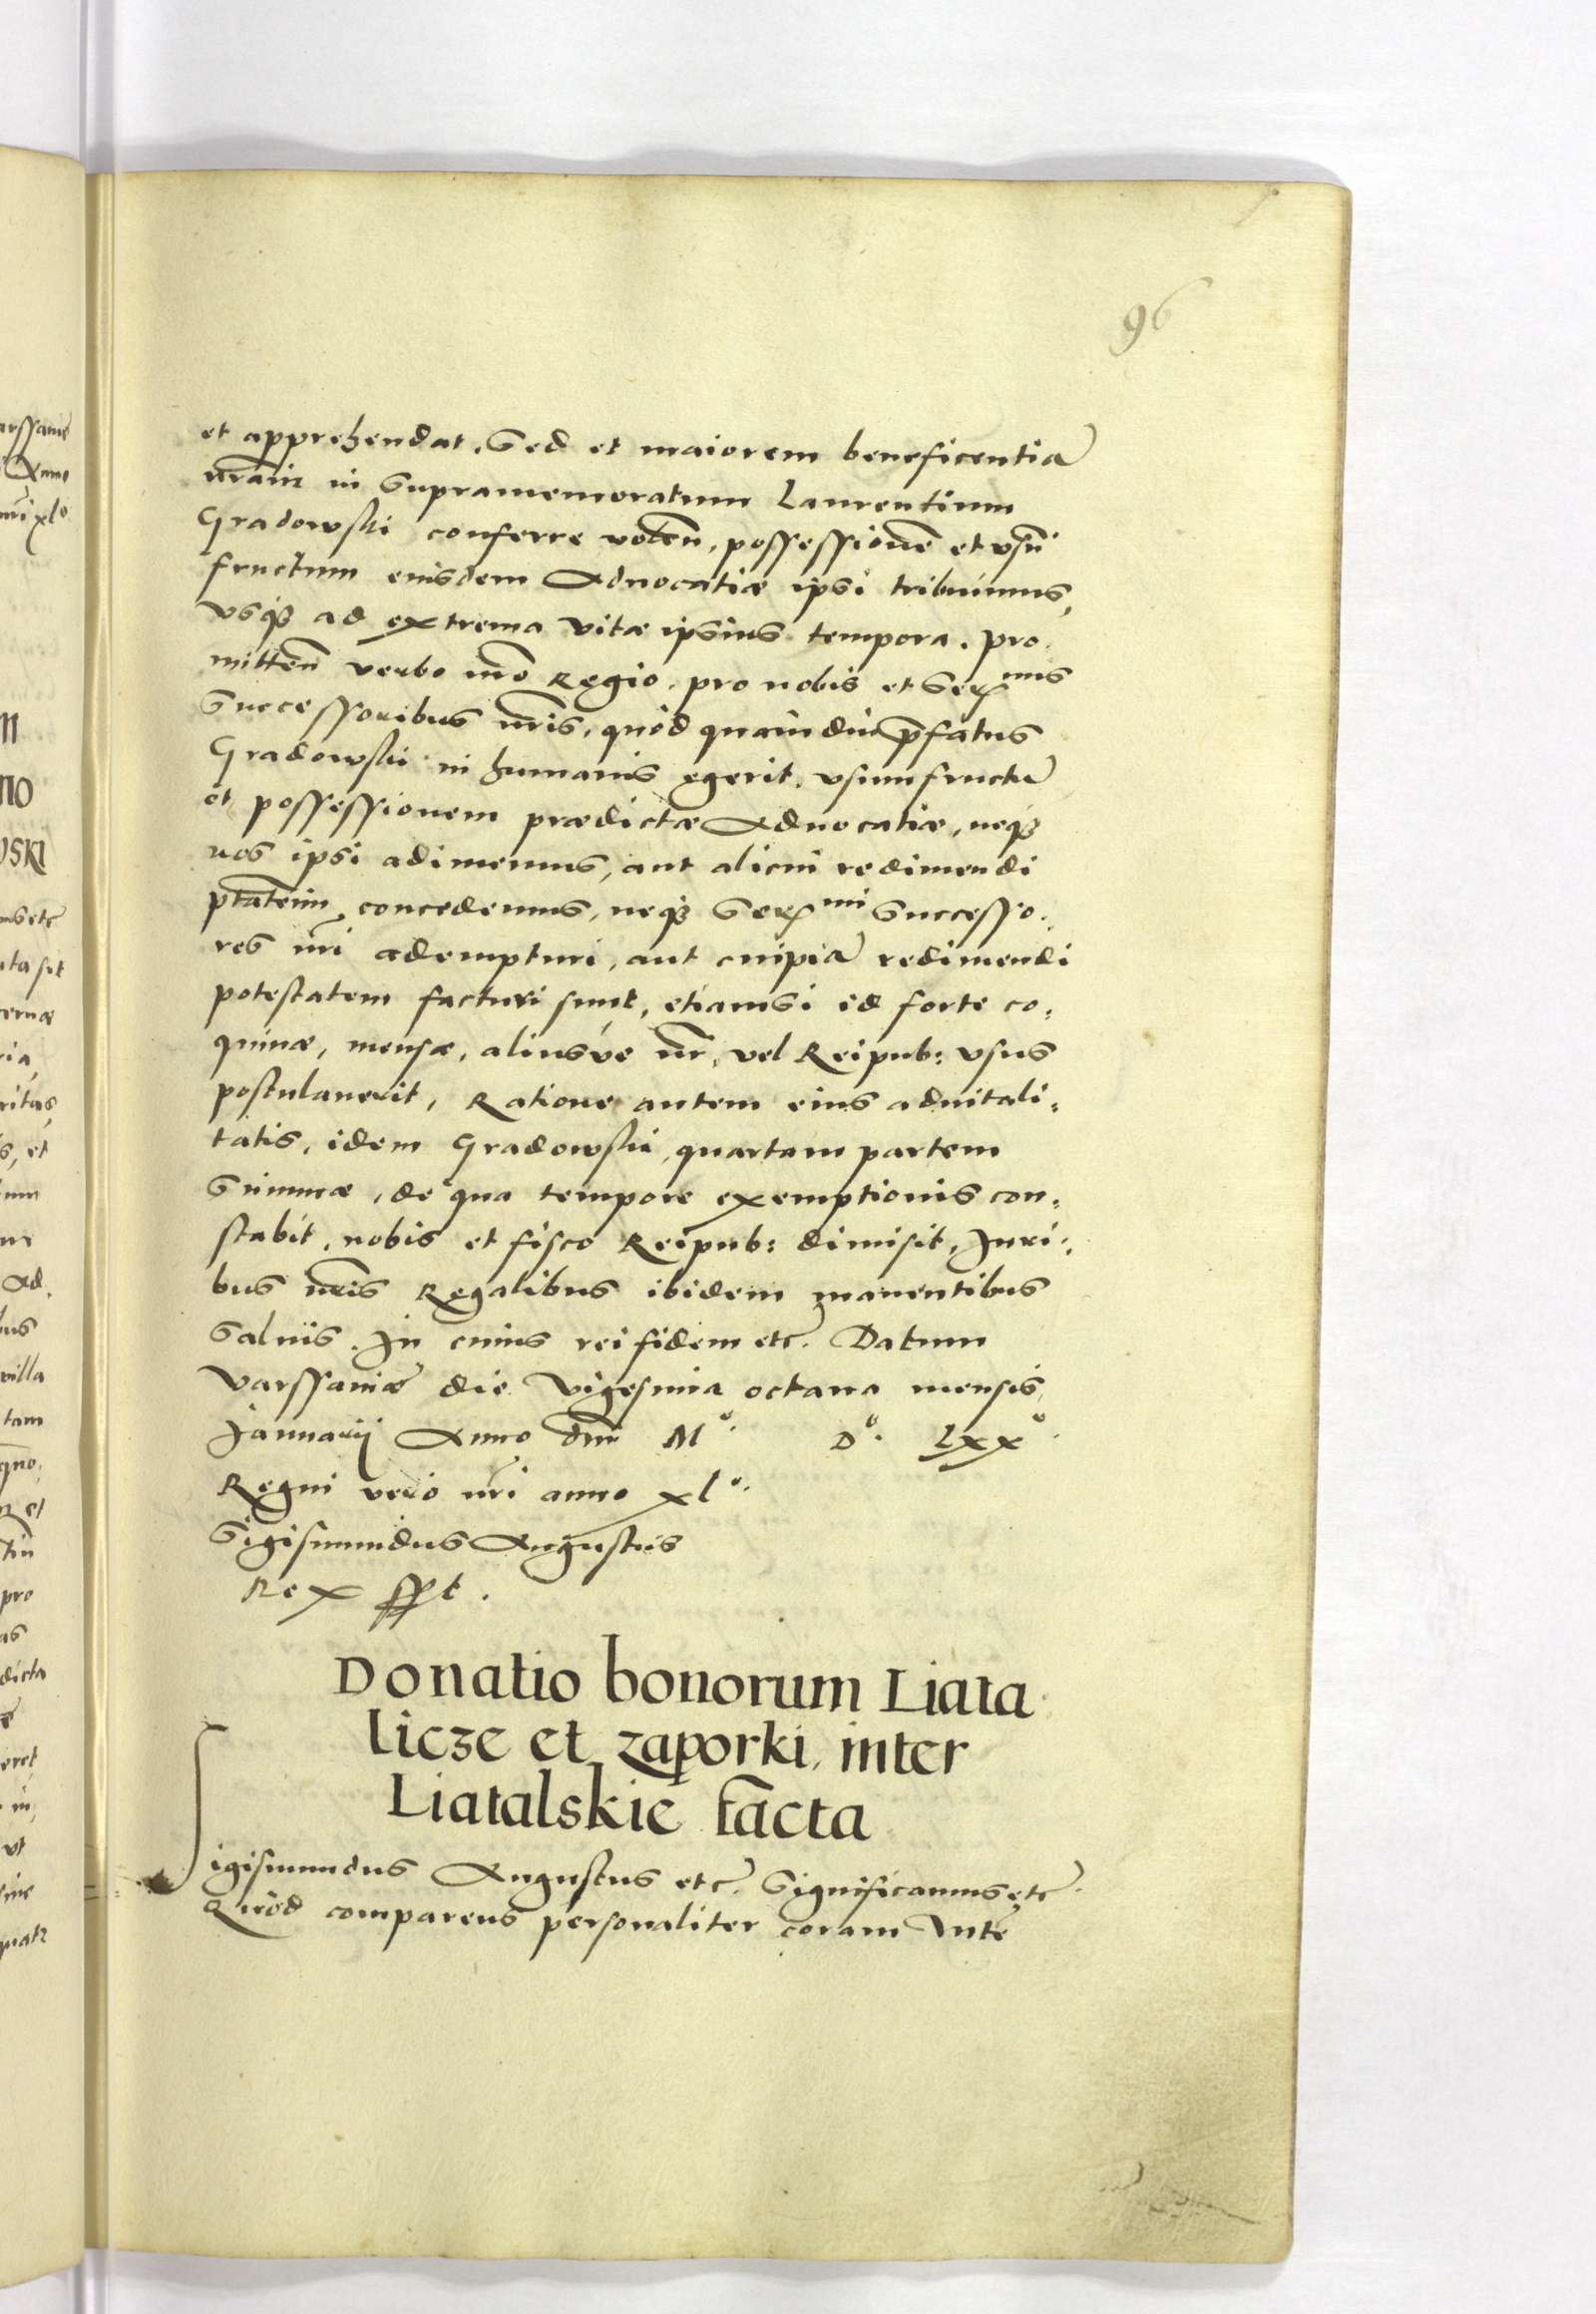 96
et apprehendat. Sed et maiorem beneficentiã
nr̃am in Supramemoratum Laurentium
Gradowski conferre voleñ, possessionẽ et vsũ
fructum eiusdem Aduocatiæ ipsi tribuimus,
vsq3 ad extrema vitæ ipsius tempora. pro-
mitteñ verbo nr̃o Regio, pro nobis et Serꝫmis
Successoribus nr̃is, quòd quamdiu p̃fatus
Gradowski in humanis egerit, vsumfructũ
et possessionem prædictæ Aduocatiæ, neq3
nos ipsi adimemus, aut alicui redimendi
ptãtem concedemus, neq3 Serꝫmi Successo-
res nr̃i adempturi, aut cuipiã redimendi
potestatem facturi sunt, etiamsi id forte co-
quinæ, mensæ, aliusúe nr̃, vel Reipub: vsus
postulauerit, Ratione autem eius aduitali-
tatis, idem Gradowski, quartam partem
Summæ, de qua tempore exemptionis con-
stabit, nobis et fisco Reipub: dimisit, Juri-
bus nr̃is Regalibus ibidem manentibus
Saluis. In cuius rei fidem etc. Datum
Varssauiæ die Vigesima octaua mensis
Januarij Anno dñi M°. D°. Lxx°.
Regni verò nr̃i anno xl°.
Sigismundus Augustus
Rex sspt.
Donatio bonorum Liata
licze et zaporki, inter
Liatalskie facta
Sigismundus Augustus etc. Significamus etc.
Quòd comparens personaliter coram Nr̃te